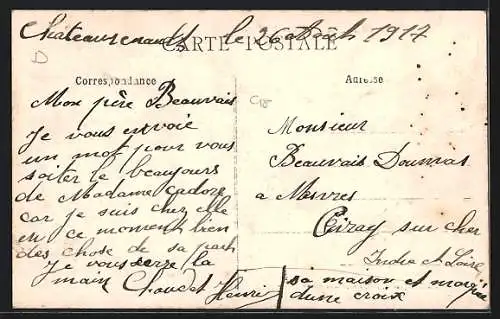 Châteaurenault le 26 Août 1917
CARTE POSTALE
D
Correspondance
C18
Adresse
Mon père Beauvais
Je vous envoie
un mot pour vous
soiter le beaujours
de Madame Cadore
car je suis chez elle
en ce moment bien
des chose de sa part
Je vous serre la
main Choudet Henri
Monsieur
Beauvais
a Mesvres
Civray sur cher
Indre et Loire
sa maison et
dune croix